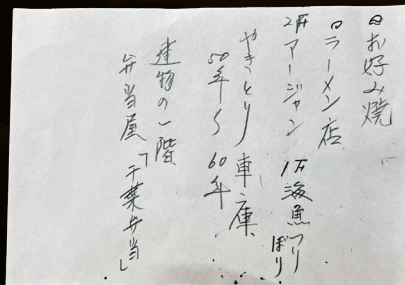 お好み焼
ラーメン店
2Fマージャン 1F海魚つりぼり
やきとり 車庫
50年〜60年
建物の一階
弁当屋「千葉弁当」